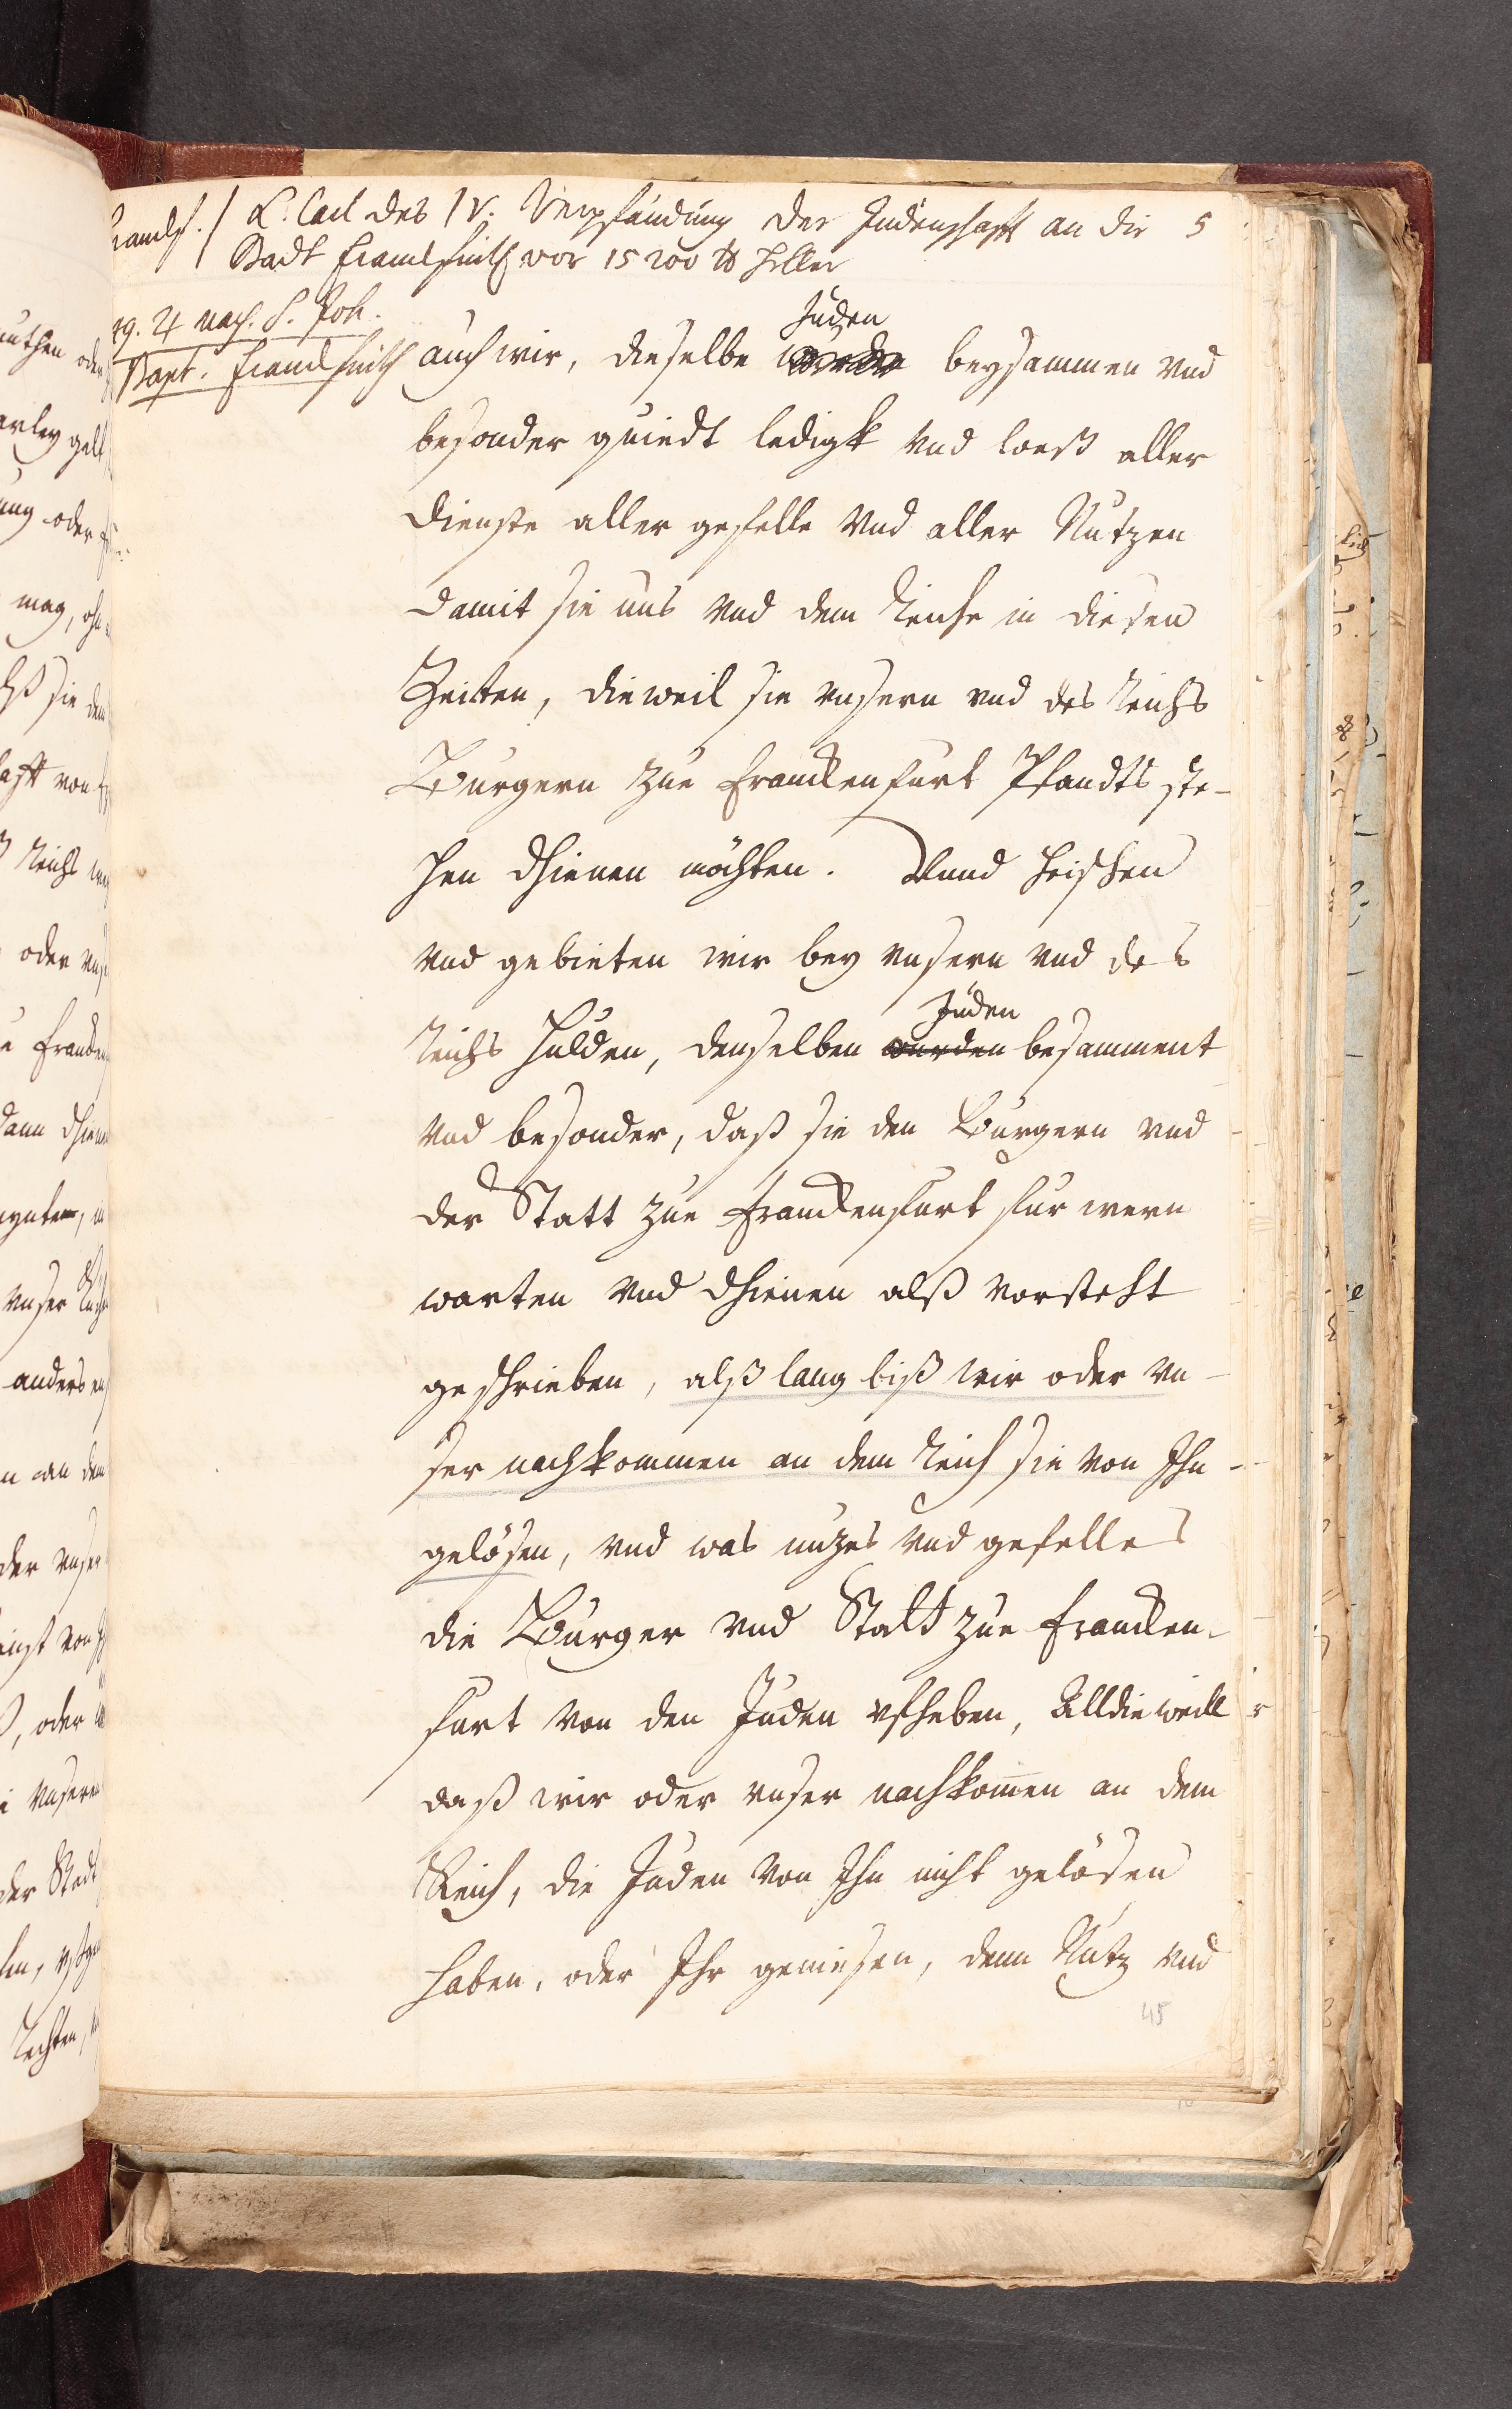 K. Carl des IV. Verpfändung der Judenschafft an die 5
Stadt Franckfurth vor 15200 ℔ Heller
4 nach S. Joh.
Bapt. Franckfurth
Juden
auch wir, dieselbe beysammen vnd
besonder quiedt ledigk vnd loeß aller
dienste aller gefelle vnd aller Nutzen
damit sie uns vnd dem Reiche in diesen
Zeitten, dieweil sie vnsern vnd des Reichs
Burgern zue Franckenfurt Pfandts ste-
hen dhienen möchten. Vnnd heischen
vnd gebieten wir bey vnsern vnd des
Juden
Reichs Hulden, denselben wurden besamment
vnd besonder, daß sie den Burgern vnd
der Statt zue Franckenfurt fur wern
warten vnd dhienen alß vorsteht
geschrieben, alß lang biß wir oder vn-
ser nachkommen an dem Reich sie von Ihn
gelösen, vnd was nuzes vnd gefelles
die Burger vnd Statt zue Francken-
furt von den Juden vfheben, Alldieweill
daß wir oder vnser nachkom̄en an dem
Reich, die Juden von Ihn nicht gelösen
haben, oder Ihr geniesen, denn Nutz vnd
45